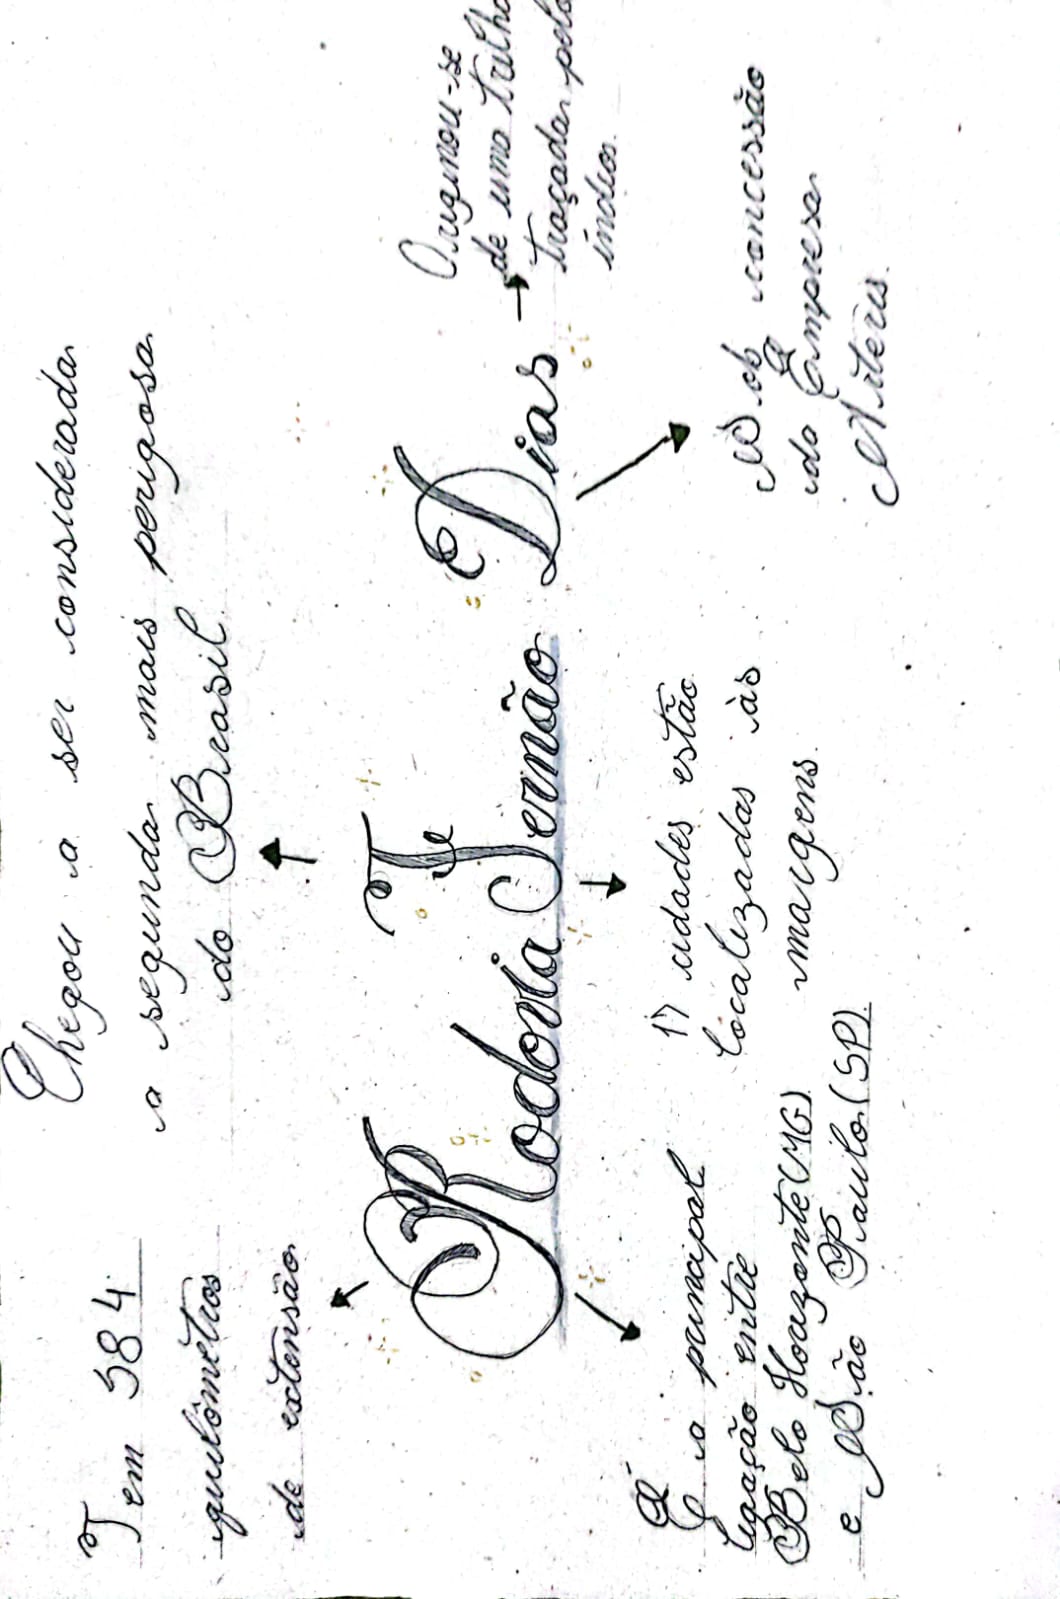 Tem 584
quilômetros
de extensão.
Chegou a ser considerada
a segunda mais perigosa
do Brasil.
Rodovia Fernão Dias
Originou-se
de uma trilha
traçada pelo
índios.
É a principal
ligação entre
Belo Horizonte (MG)
e São Paulo (SP).
17 cidades estão
localizadas às
margens.
Sob concessão
da Empresa
Arteris.